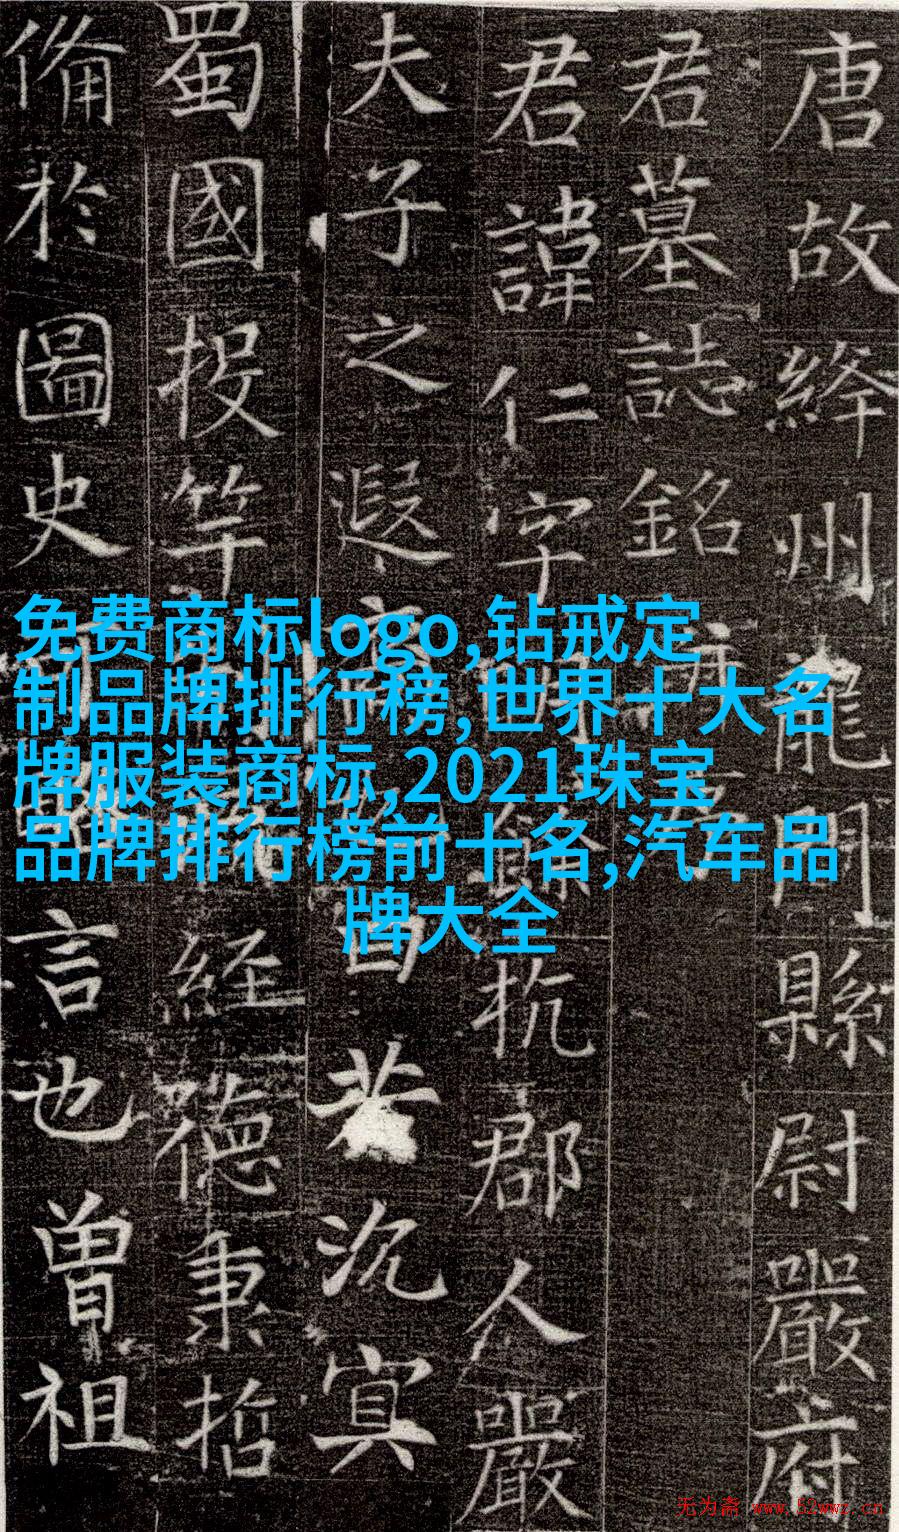 唐故絳州龍門縣尉嚴府
君墓誌銘
君諱仁字餘杭郡人嚴
夫子之遐裔若沉冥
蜀國投竿經德秉哲
備於圖史言也曾祖
免费商标logo,钻戒定
制品牌排行榜,世界十大名
牌服装商标,2021珠宝
品牌排行榜前十名,汽车品
牌大全
无为斋 www.52wwz.cn